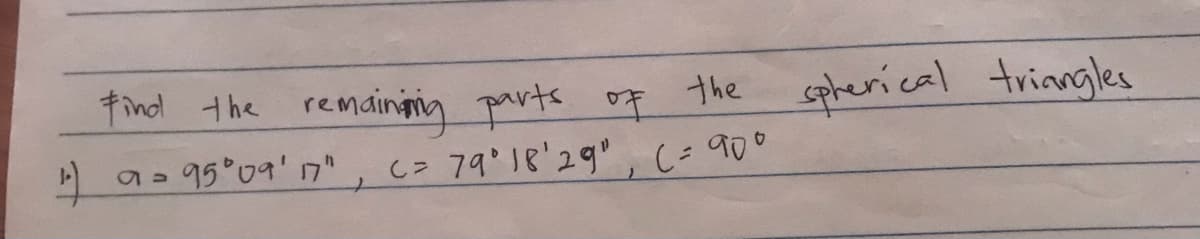 Find the remaining parts of the spherical triangles
1.) a = 95°09'17", c = 79°18'29", C = 90°